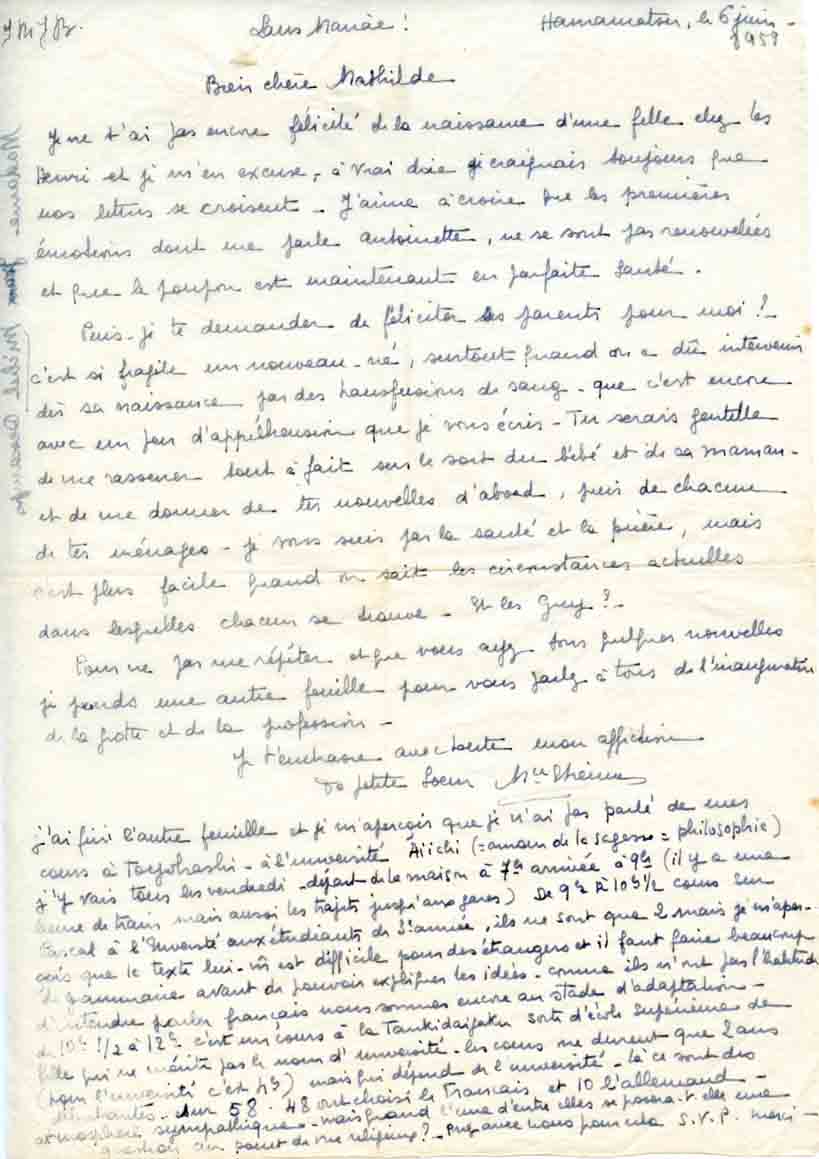 JMJB. Sans Mariae! Hamamatsu, le 6 juin
1959
Bien chère Mathilde
Je ne t'ai pas encore félicité de la naissance d'une fille chez les
Henri et je m'en excuse, à vrai dire je craignais toujours que
nos lettres se croisent - J'aime à croire que les premières
émotions dont me parle Antoinette, ne se sont pas renouvelées
et que le poupon est maintenant en parfaite santé.
Puis-je te demander de féliciter les parents pour moi?
c'est si fragile un nouveau-né, surtout quand on a dû intervenir
dès sa naissance par des transfusions de sang - que c'est encore
avec un peu d'appréhension que je vous écris - Tu serais gentille
de me rassurer tout à fait sur le sort du bébé et de sa maman -
et de me donner de tes nouvelles d'abord, puis de chacun
de tes ménages - je vous suis par la santé et la prière, mais
c'est plus facile quand on sait les circonstances actuelles
dans lesquelles chacun se trouve - Et les Guy? -
Pour ne pas me répéter et que vous ayez tous quelques nouvelles
je prends une autre feuille pour vous parler à tous de l'inauguration
de la grotte et de la profession -
Je t'embrasse avec toute mon affection
Ta petite Soeur
j'ai fini l'autre feuille et je m'aperçois que je n'ai pas parlé de mes
cours à Toyohashi - à l'université Aiichi (= amour de la sagesse = philosophie)
j'y vais tous les vendredi - départ de la maison à 7h arrivée à 9h (il y a une
heure de train mais aussi les trajets jusqu'aux gares) De 9h à 10h 1/2 cours sur
Pascal à l'Université aux étudiants de 3e année, ils ne sont que 2 mais je m'aper-
çois que le texte lui-m̂ est difficile pour des étrangers et il faut faire beaucoup
de grammaire avant de pouvoir expliquer les idées - comme ils n'ont pas l'habitude
d'entendre parler français nous sommes encore au stade d'adaptation -
de 10h 1/2 à 12h c'est un cours à la Tankidaigaku sorte d'école supérieure de
fille qui ne mérite pas le nom d'université - les cours ne durent que 2 ans
(pour l'université c'est 4) mais qui dépend de l'université - là ce sont des
débutantes. Sur 58 - 48 ont choisi le français et 10 l'allemand -
atmosphère sympathique - mais quand l'une d'entre elles se posera-t-elle une
question au point de vue religieux? - Priez avec nous pour cela S.V.P. merci -
Madame Jean